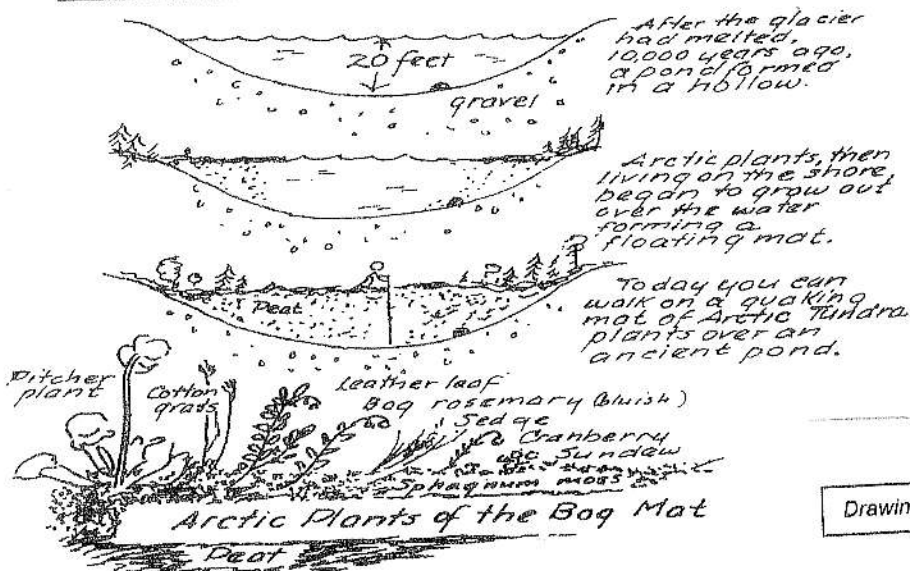 After the glacier
had melted,
10,000 years ago,
a pond formed
in a hollow.
20 feet
gravel
Arctic plants, then
living on the shore,
began to grow out
over the water
forming a
floating mat.
Today you can
walk on a quaking
mat of Arctic Tundra
plants over an
ancient pond.
Peat
Pitcher
plant
Cotton
grass
Leather leaf
Bog rosemary (bluish)
Sedge
Cranberry
Sundew
Sphagnum moss
Arctic Plants of the Bog Mat
Peat
Drawin